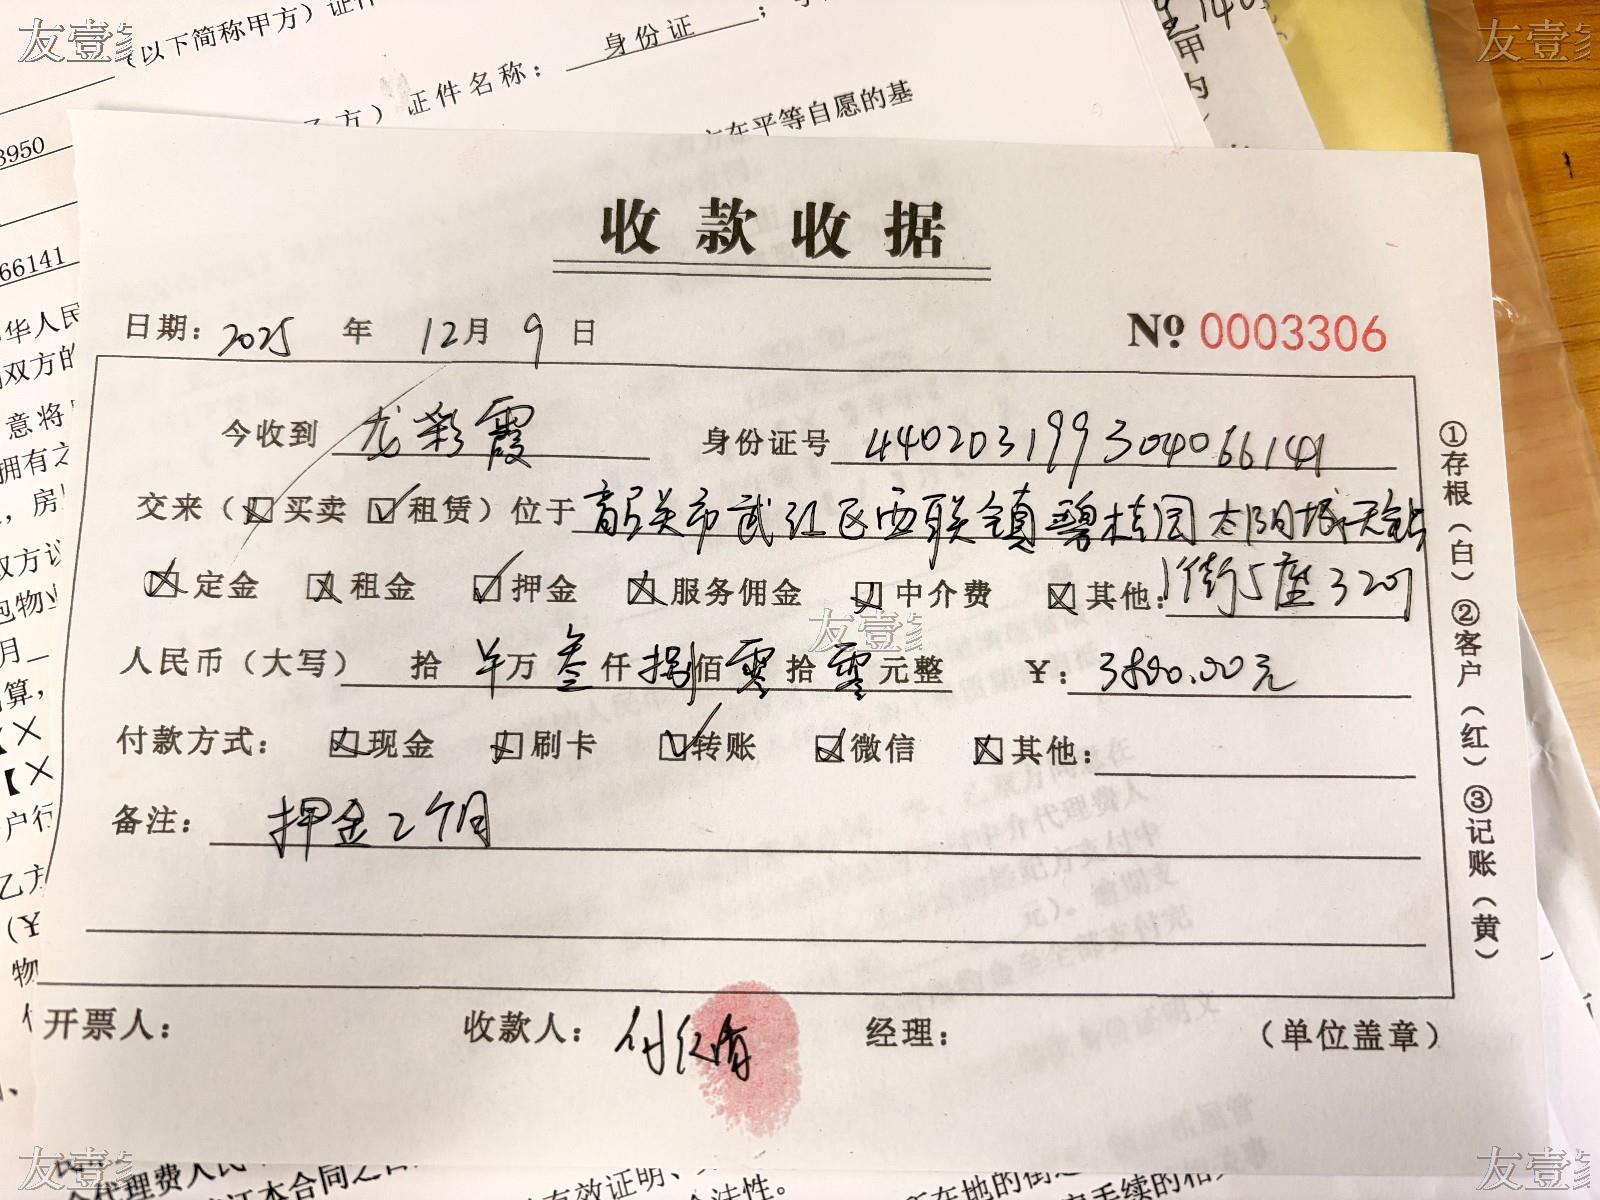 友壹家
友壹家
(以下简称甲方)证件
身份证
乙方)证件名称:
在平等自愿的基
3950
66141
收款收据
日期: 2025 年 12月 9 日
No 0003306
今收到 龙彩霞 身份证号 440203199304066141
交来(☒买卖 ☑租赁)位于 韶关市武江区西联镇碧桂园太阳城天钻
☒定金 ☒租金 ☑押金 ☒服务佣金 ☒中介费 ☒其他: 1街5座320
人民币(大写) 拾 ¥万 叁仟 捌佰 零拾 零元整 ¥: 3800.00元
付款方式: ☒现金 ☒刷卡 ☑转账 ☒微信 ☒其他:
备注: 押金2个月
开票人: 收款人: 付 经理: (单位盖章)
①存根(白)②客户(红)③记账(黄)
友壹家
友壹家
友壹家
代理费人民
本合同之
有效证明、
合法性。
所在地的街
手续的相